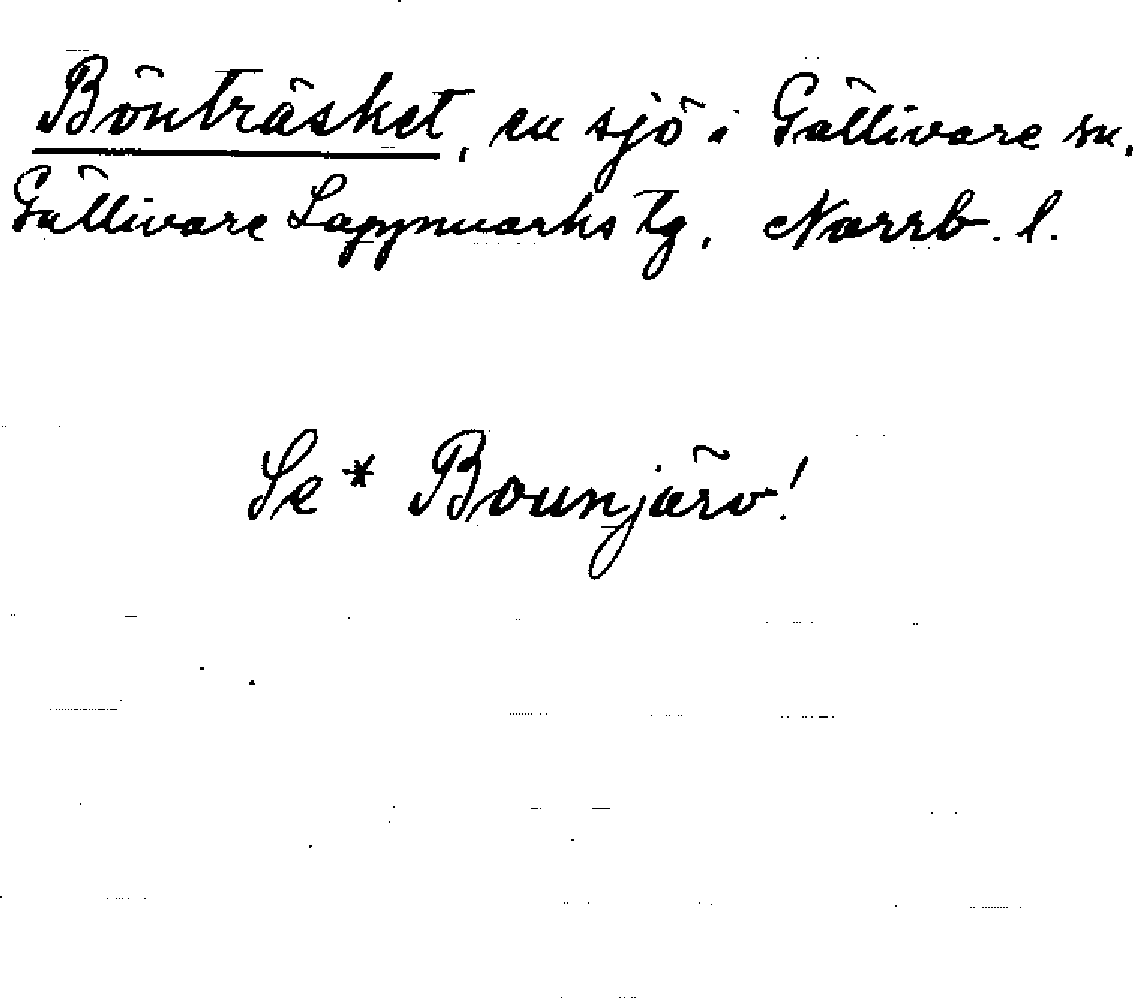 Bönträsket, en sjö i Gällivare sn,
Gällivare Lappmarks tg, Norrb. l.
Se * Bounjärv!